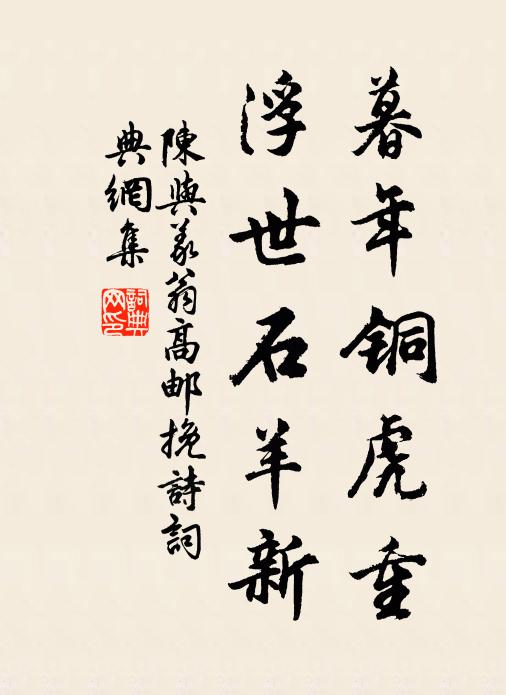 暮年铜虎重
浮世石羊新
陳與義翁高邮挽詩詞
典網集
詞典網印